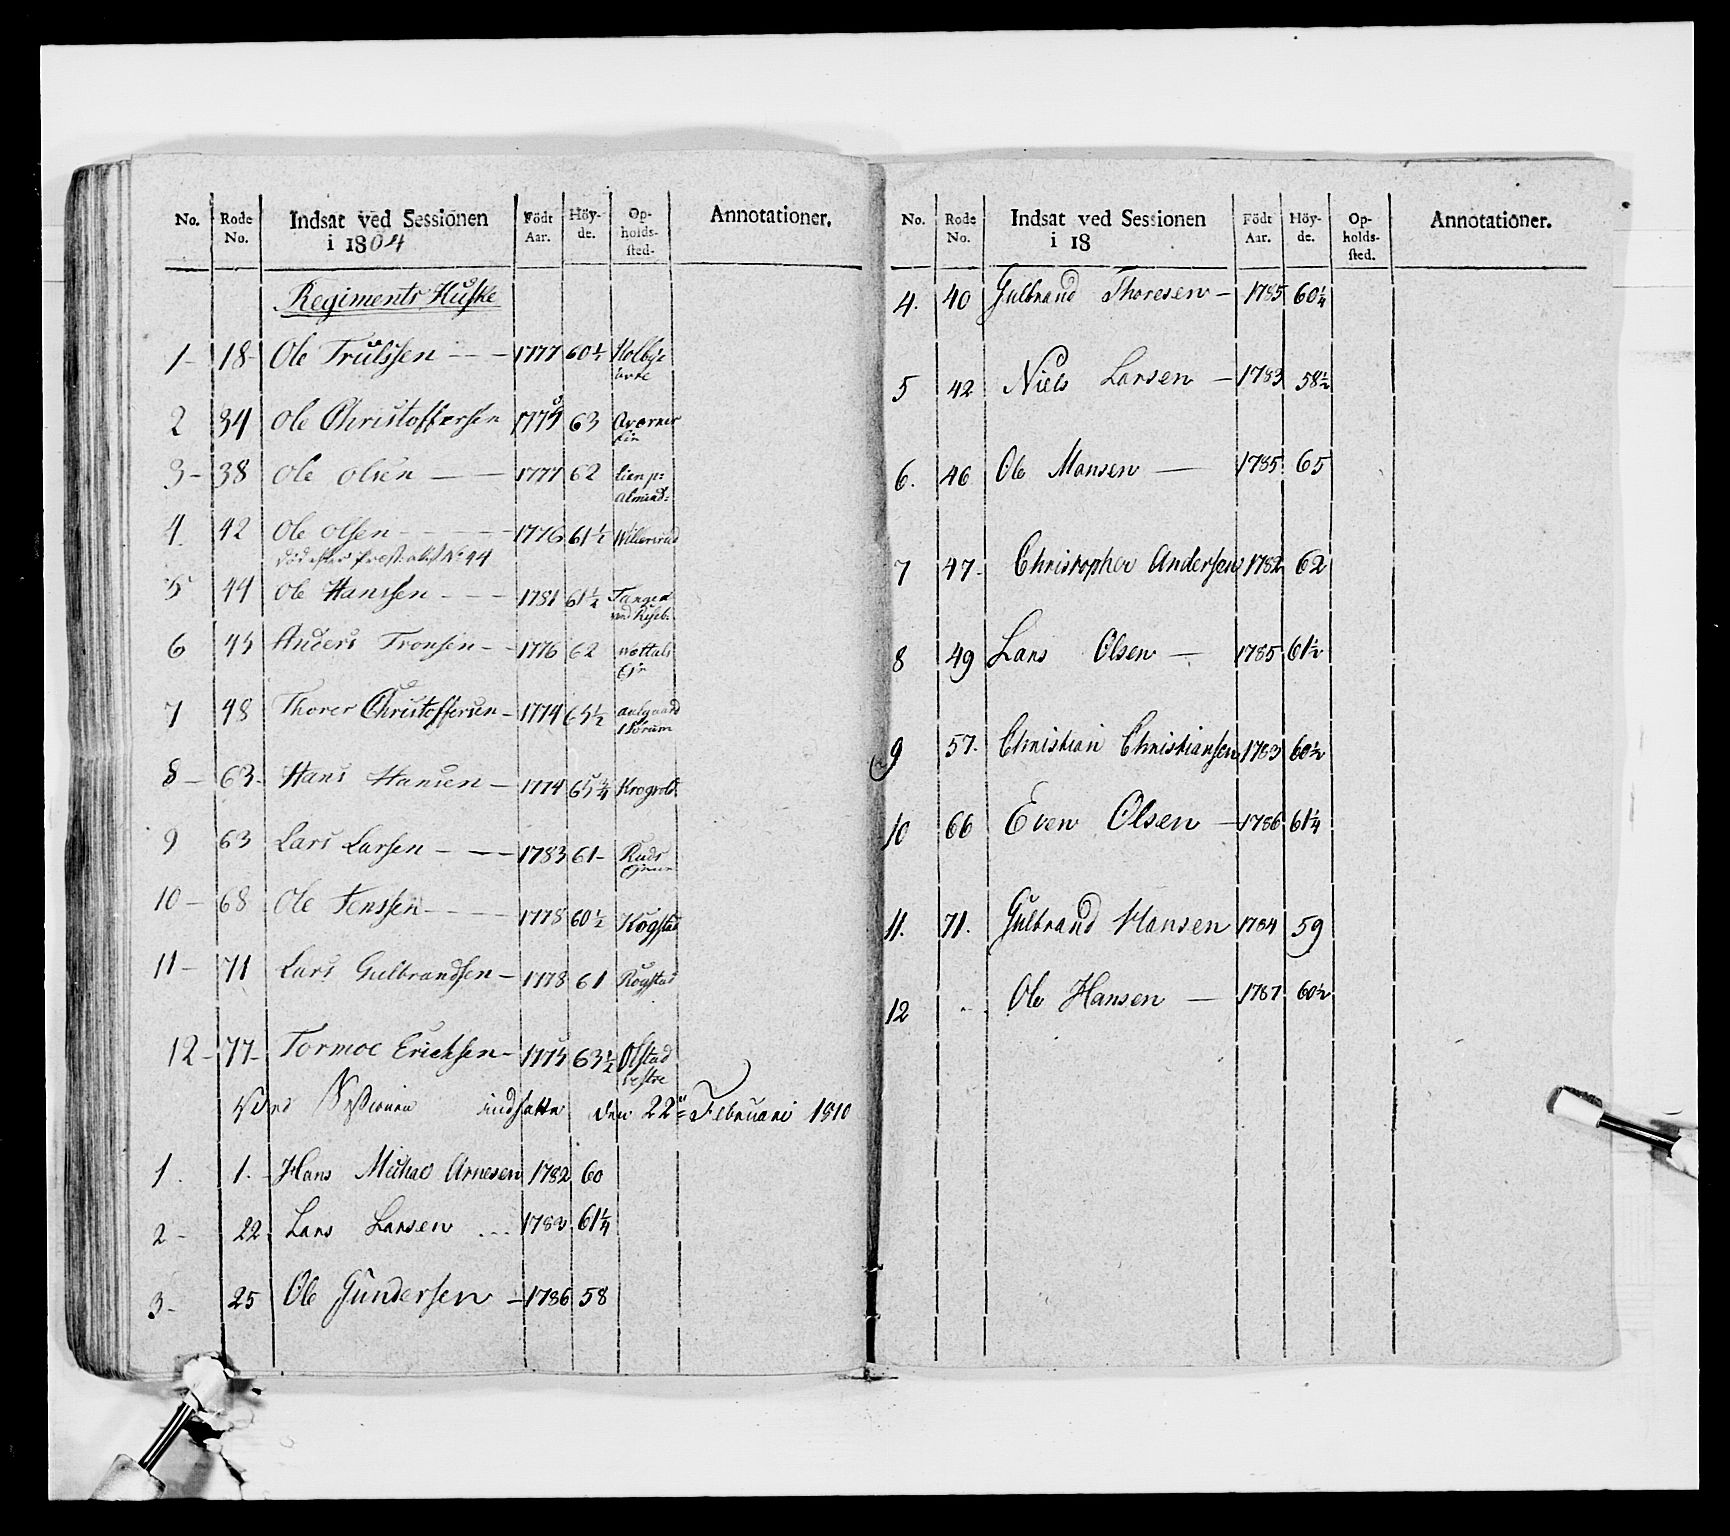 No. Rode No. Indsat ved Sessionen i 1804 Födt Aar. Höy-de. Op-holds-sted. Annotationer.
Regiments Huske
1 - 18 - Ole Trulssen - - - 1777 60½ Kolby: övre
2 34 Ole Christoffersen 1775 63
3 - 38 Ole Olsen - - 1777 62 Lien p: Almind:
4. 42 Ole Olsen - - - - 1776 61½ Willersrud
död efter Præst: attest No 44
5 44 Ole Hanssen - - - 1781 61½ Tangen
6 45 Anders Tronsen - - 1776 62
7 48 Thorer Christoffersen - 1774 65½ aulgaard i Sörum
8 - 63 - Hans Hansen - 1774 65¾ Krogvold
9 63 Lars Larsen - - - 1783 61 - Ruds
10 - 68 Ole Jenssen - - - - 1778 60½ Kogstad
11 - 71 Lars Gulbrandsen - 1778 61 Rogstad
12 - 77 - Tormoe Erichsen - 1775 63½ Olstad vestre
Ved Sessionen indsatte den 22de Februari 1810
1. 1. - Hans Michael Arnesen 1782 60
2 - 22. Lars Larsen ... 1782 61¼
3 - 25 Ole Gundersen - 1786 58
No. Rode No. Indsat ved Sessionen i 18 Födt Aar. Höy-de. Op-holds-sted. Annotationer.
4. 40 Gulbrand Thoresen - 1785 60¼
5 42 Niels Larsen - 1783 58½
6. 46 Ole Mansen - 1785 65
7 47 - Christopher Andersen 1782 62
8 49 Lars Olsen - 1785 61½
9 57. Christian Christiansen 1783 60½
10 66 Even Olsen - 1786 61¼
11. 71. Gulbrand Hansen 1784 59
12 ... Ole Hansen - 1787 60½